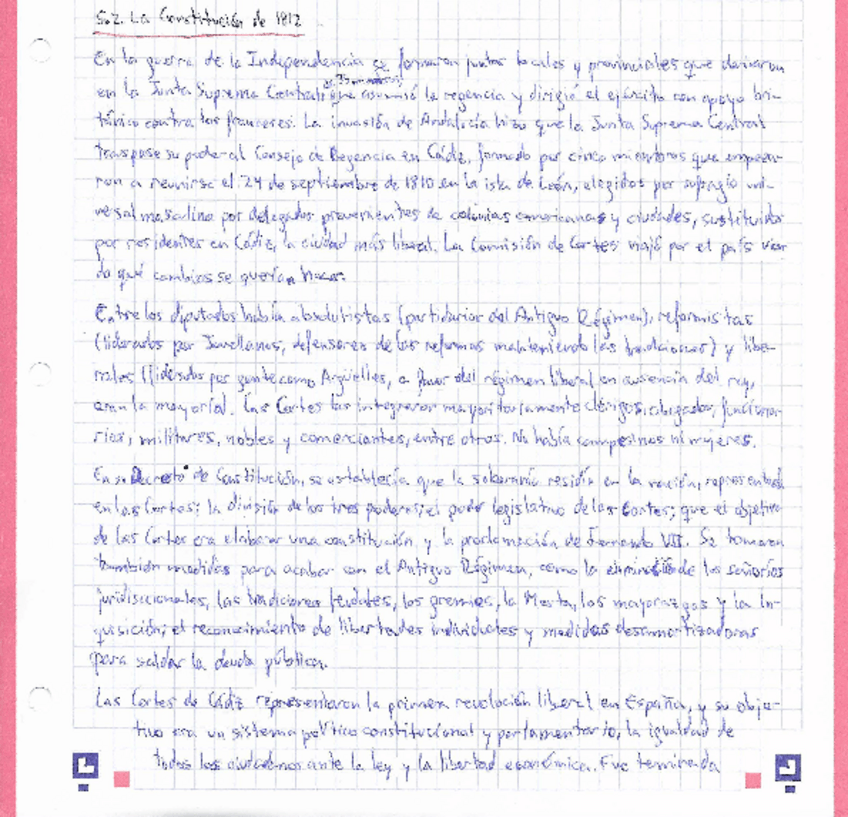 5.2. La Constitución de 1812
En la guerra de la Independencia se formaron juntas locales y provinciales que derivaron
en la Junta Suprema Central que asumió la regencia y dirigió el ejército con apoyo bri-
tánico contra los franceses. La invasión de Andalucía hizo que la Junta Suprema Central
traspase su poder al Consejo de Regencia en Cádiz, formado por cinco miembros que empeza-
ron a reunirse el 24 de septiembre de 1810 en la isla de León, elegidos por sufragio uni-
versal masculino por delegados provenientes de colonias americanas y ciudades, sustituidos
por residentes en Cádiz, la ciudad más liberal. La Comisión de Cortes viajó por el país vien-
do qué cambios se querían hacer.
Entre los diputados había absolutistas (partidarios del Antiguo Régimen), reformistas
(liderados por Jovellanos, defensores de las reformas manteniendo las tradiciones) y libe-
rales (liderados por gente como Argüelles, a favor del régimen liberal en ausencia del rey,
eran la mayoría). Las Cortes las integraron mayoritariamente clérigos, abogados, funciona-
rios, militares, nobles y comerciantes, entre otros. No había campesinos ni mujeres.
En su Decreto de Constitución, se establecía que la soberanía residía en la nación, representada
en las Cortes; la división de los tres poderes; el poder legislativo de las Cortes; que el objetivo
de las Cortes era elaborar una constitución, y la proclamación de Fernando VII. Se tomaron
también medidas para acabar con el Antiguo Régimen, como la eliminación de los señoríos
jurisdiccionales, las tradiciones feudales, los gremios, la Mesta, los mayorazgos y la In-
quisición; el reconocimiento de libertades individuales y medidas desamortizadoras
para saldar la deuda pública.
Las Cortes de Cádiz representaron la primera revolución liberal en España, y su obje-
tivo era un sistema político constitucional y parlamentario, la igualdad de
todos los ciudadanos ante la ley y la libertad económica. Fue terminada